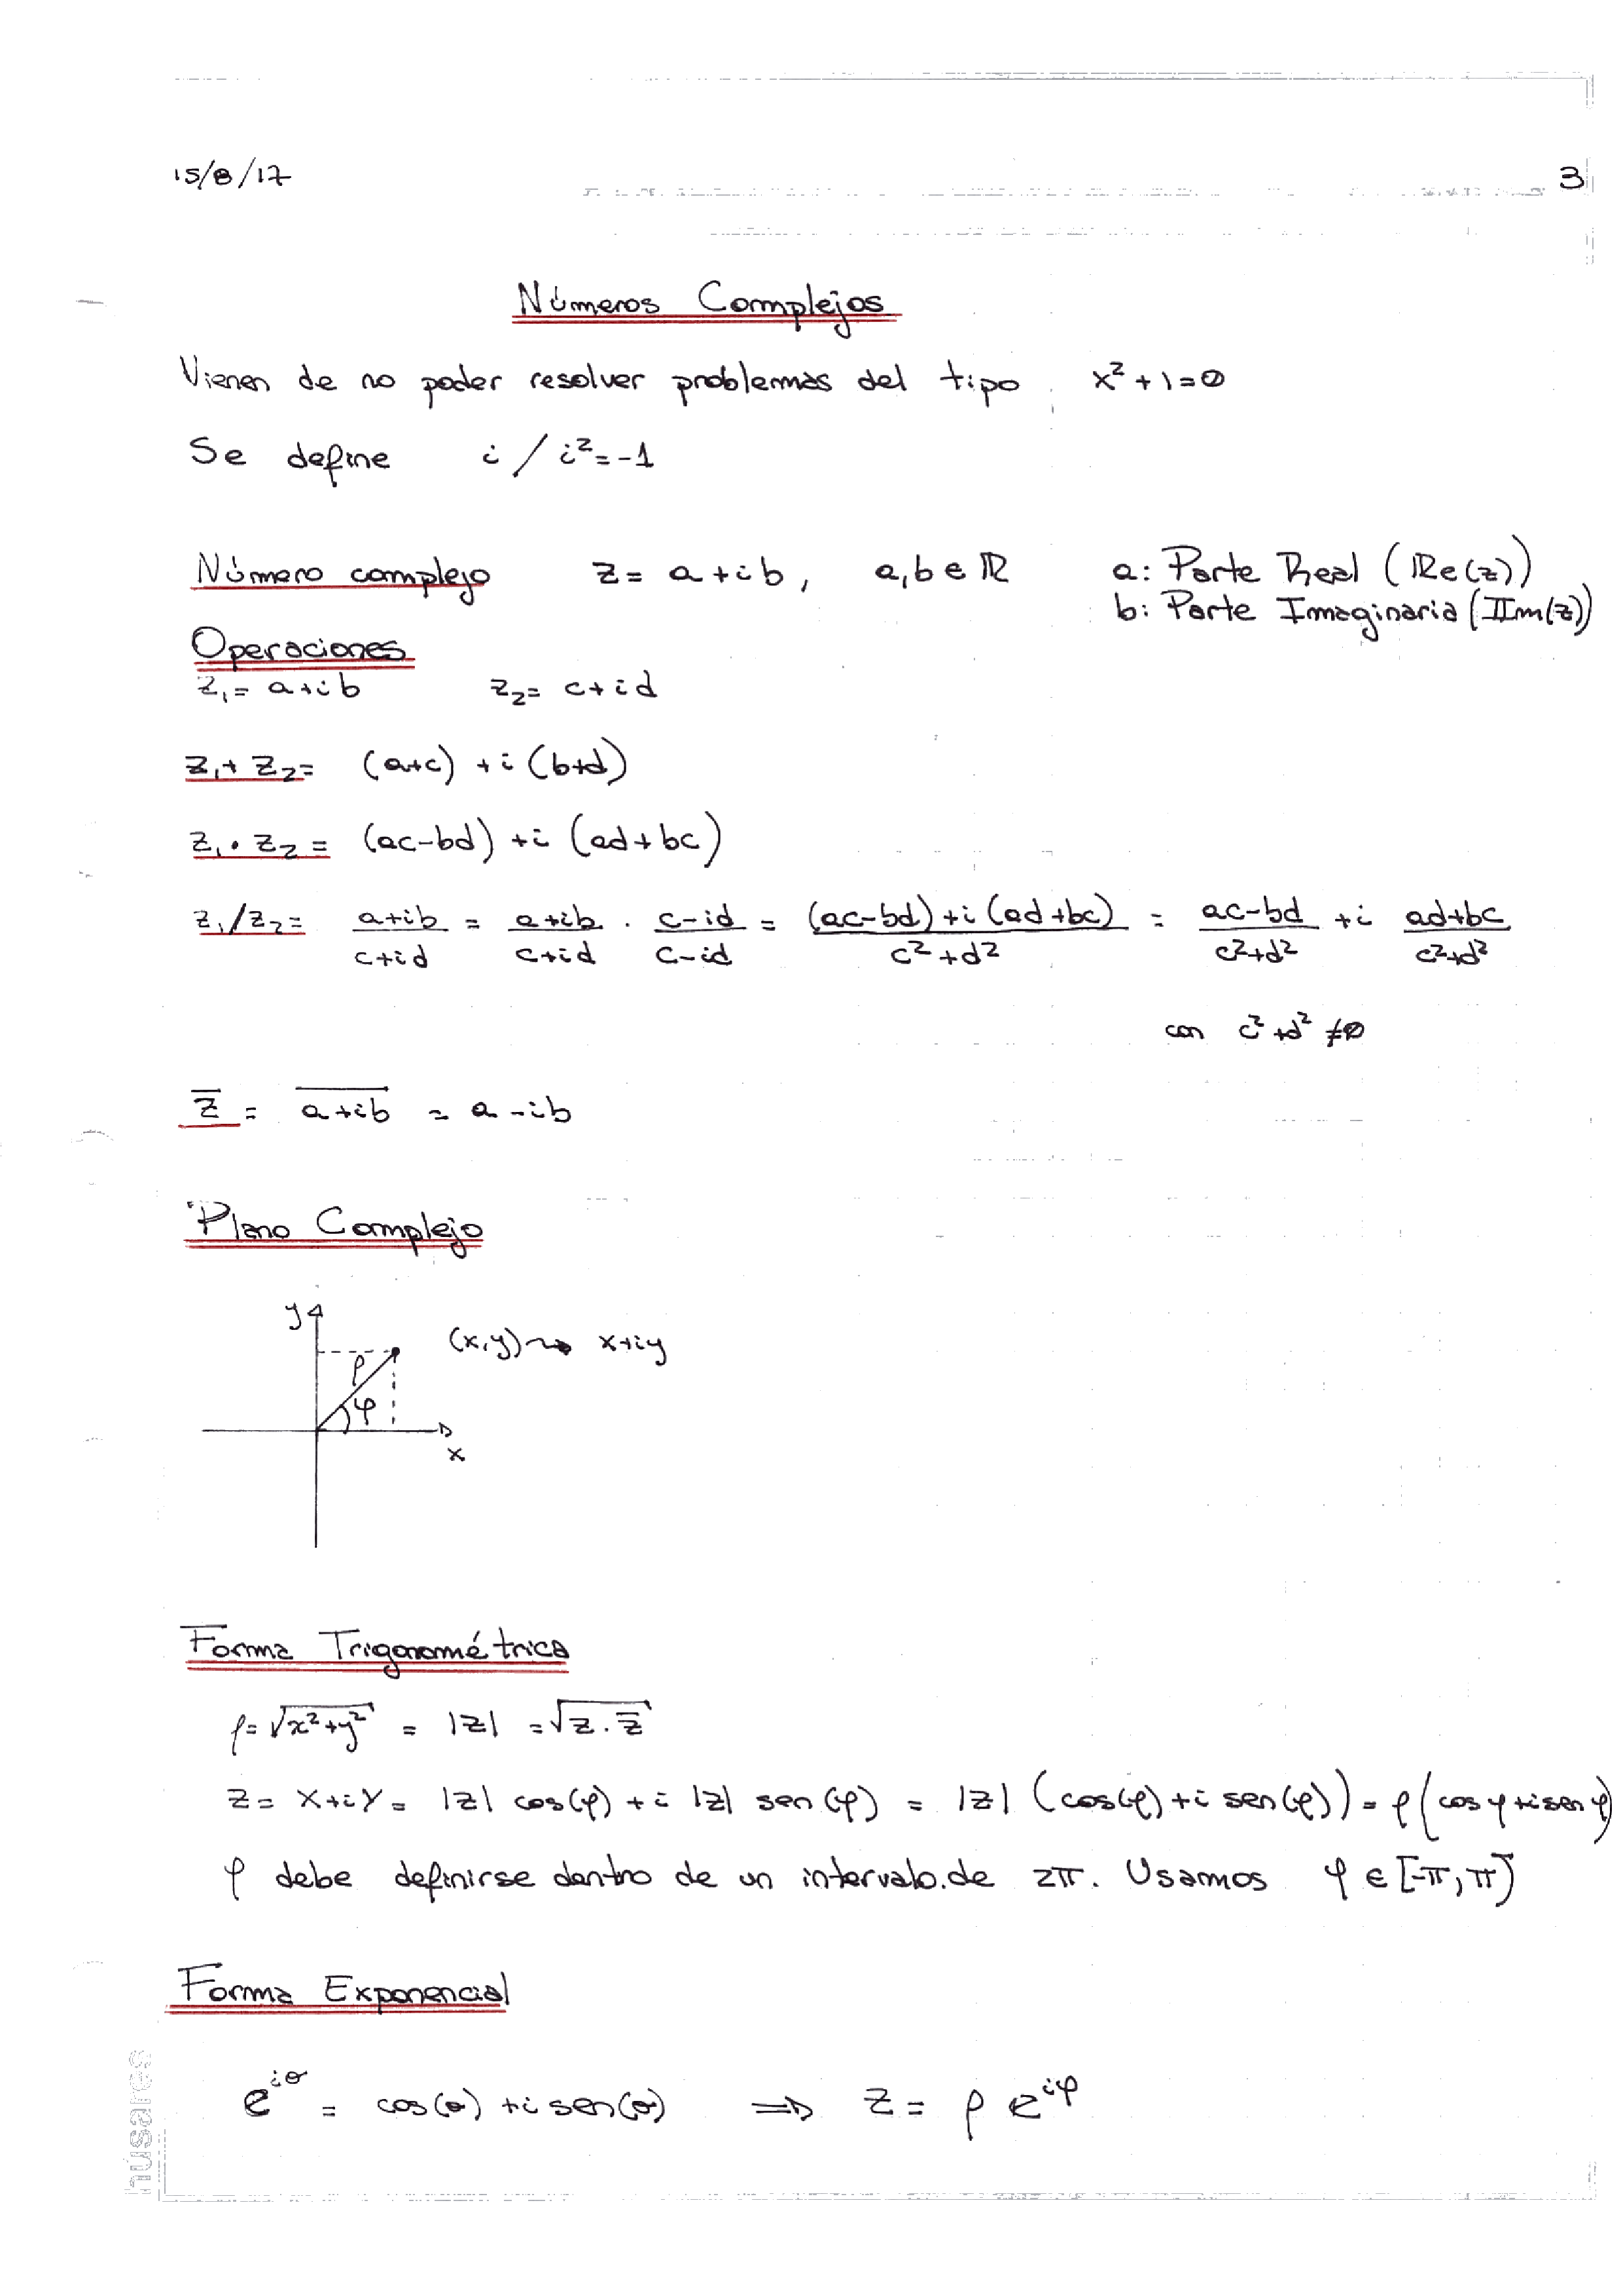 15/8/17
3
Números Complejos
Vienen de no poder resolver problemas del tipo x²+1=0
Se define i / i²=-1
Número complejo z= a+ib, a,b ∈ ℝ a: Parte Real (ℝe(z))
b: Parte Imaginaria (𝕀m(z))
Operaciones
z₁= a+ib z₂= c+id
z₁+z₂= (a+c) +i (b+d)
z₁·z₂= (ac-bd) +i (ad+bc)
z₁/z₂= (a+ib)/(c+id) = (a+ib)/(c+id) · (c-id)/(c-id) = ((ac-bd)+i(ad+bc))/(c²+d²) = (ac-bd)/(c²+d²) +i (ad+bc)/(c²+d²)
con c²+d² ≠0
z̅ = \overline{a+ib} = a-ib
Plano Complejo
y
(x,y) ⇝ x+iy
ρ
φ
x
Forma Trigonométrica
ρ=√(x²+y²) = |z| =√(z·z̅)
z= x+iy= |z| cos(φ)+i |z| sen(φ) = |z| (cos(φ)+i sen(φ))= ρ(cos φ+i sen φ)
φ debe definirse dentro de un intervalo de 2π. Usamos φ ∈ [-π, π)
Forma Exponencial
e^{iθ} = cos(θ) +i sen(θ) ⇒ z= ρ e^{iφ}
húsares